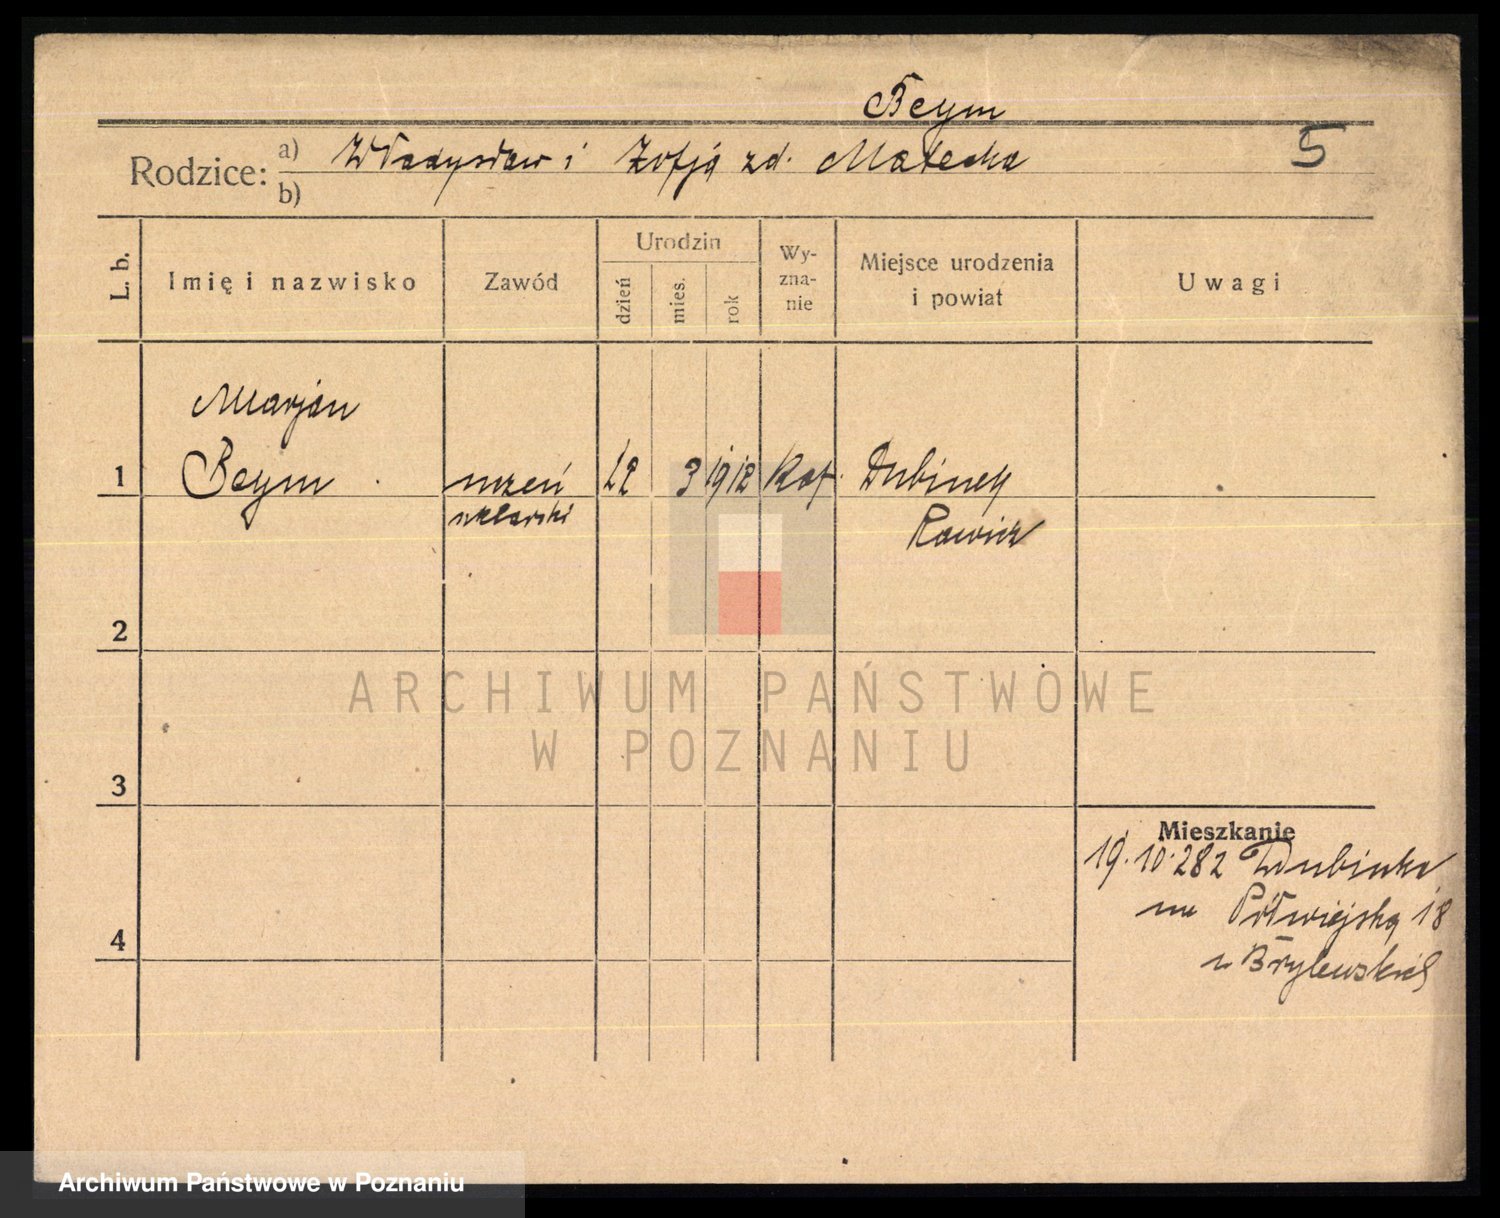 Beym
Rodzice: a) Władysław i Zofja zd. Małecka 5
b)
L. b. Imię i nazwisko Zawód Urodzin dzień mies. rok Wy-zna-nie Miejsce urodzenia i powiat Uwagi
Marjan
1 Beym uczeń 22 3 1912 Kat. Dubinek
szklarski Rawicz
2
ARCHIWUM PAŃSTWOWE
W POZNANIU
3
Mieszkanie
19.10.28 z Dubinka
na Półwiejską 18
4
Archiwum Państwowe w Poznaniu